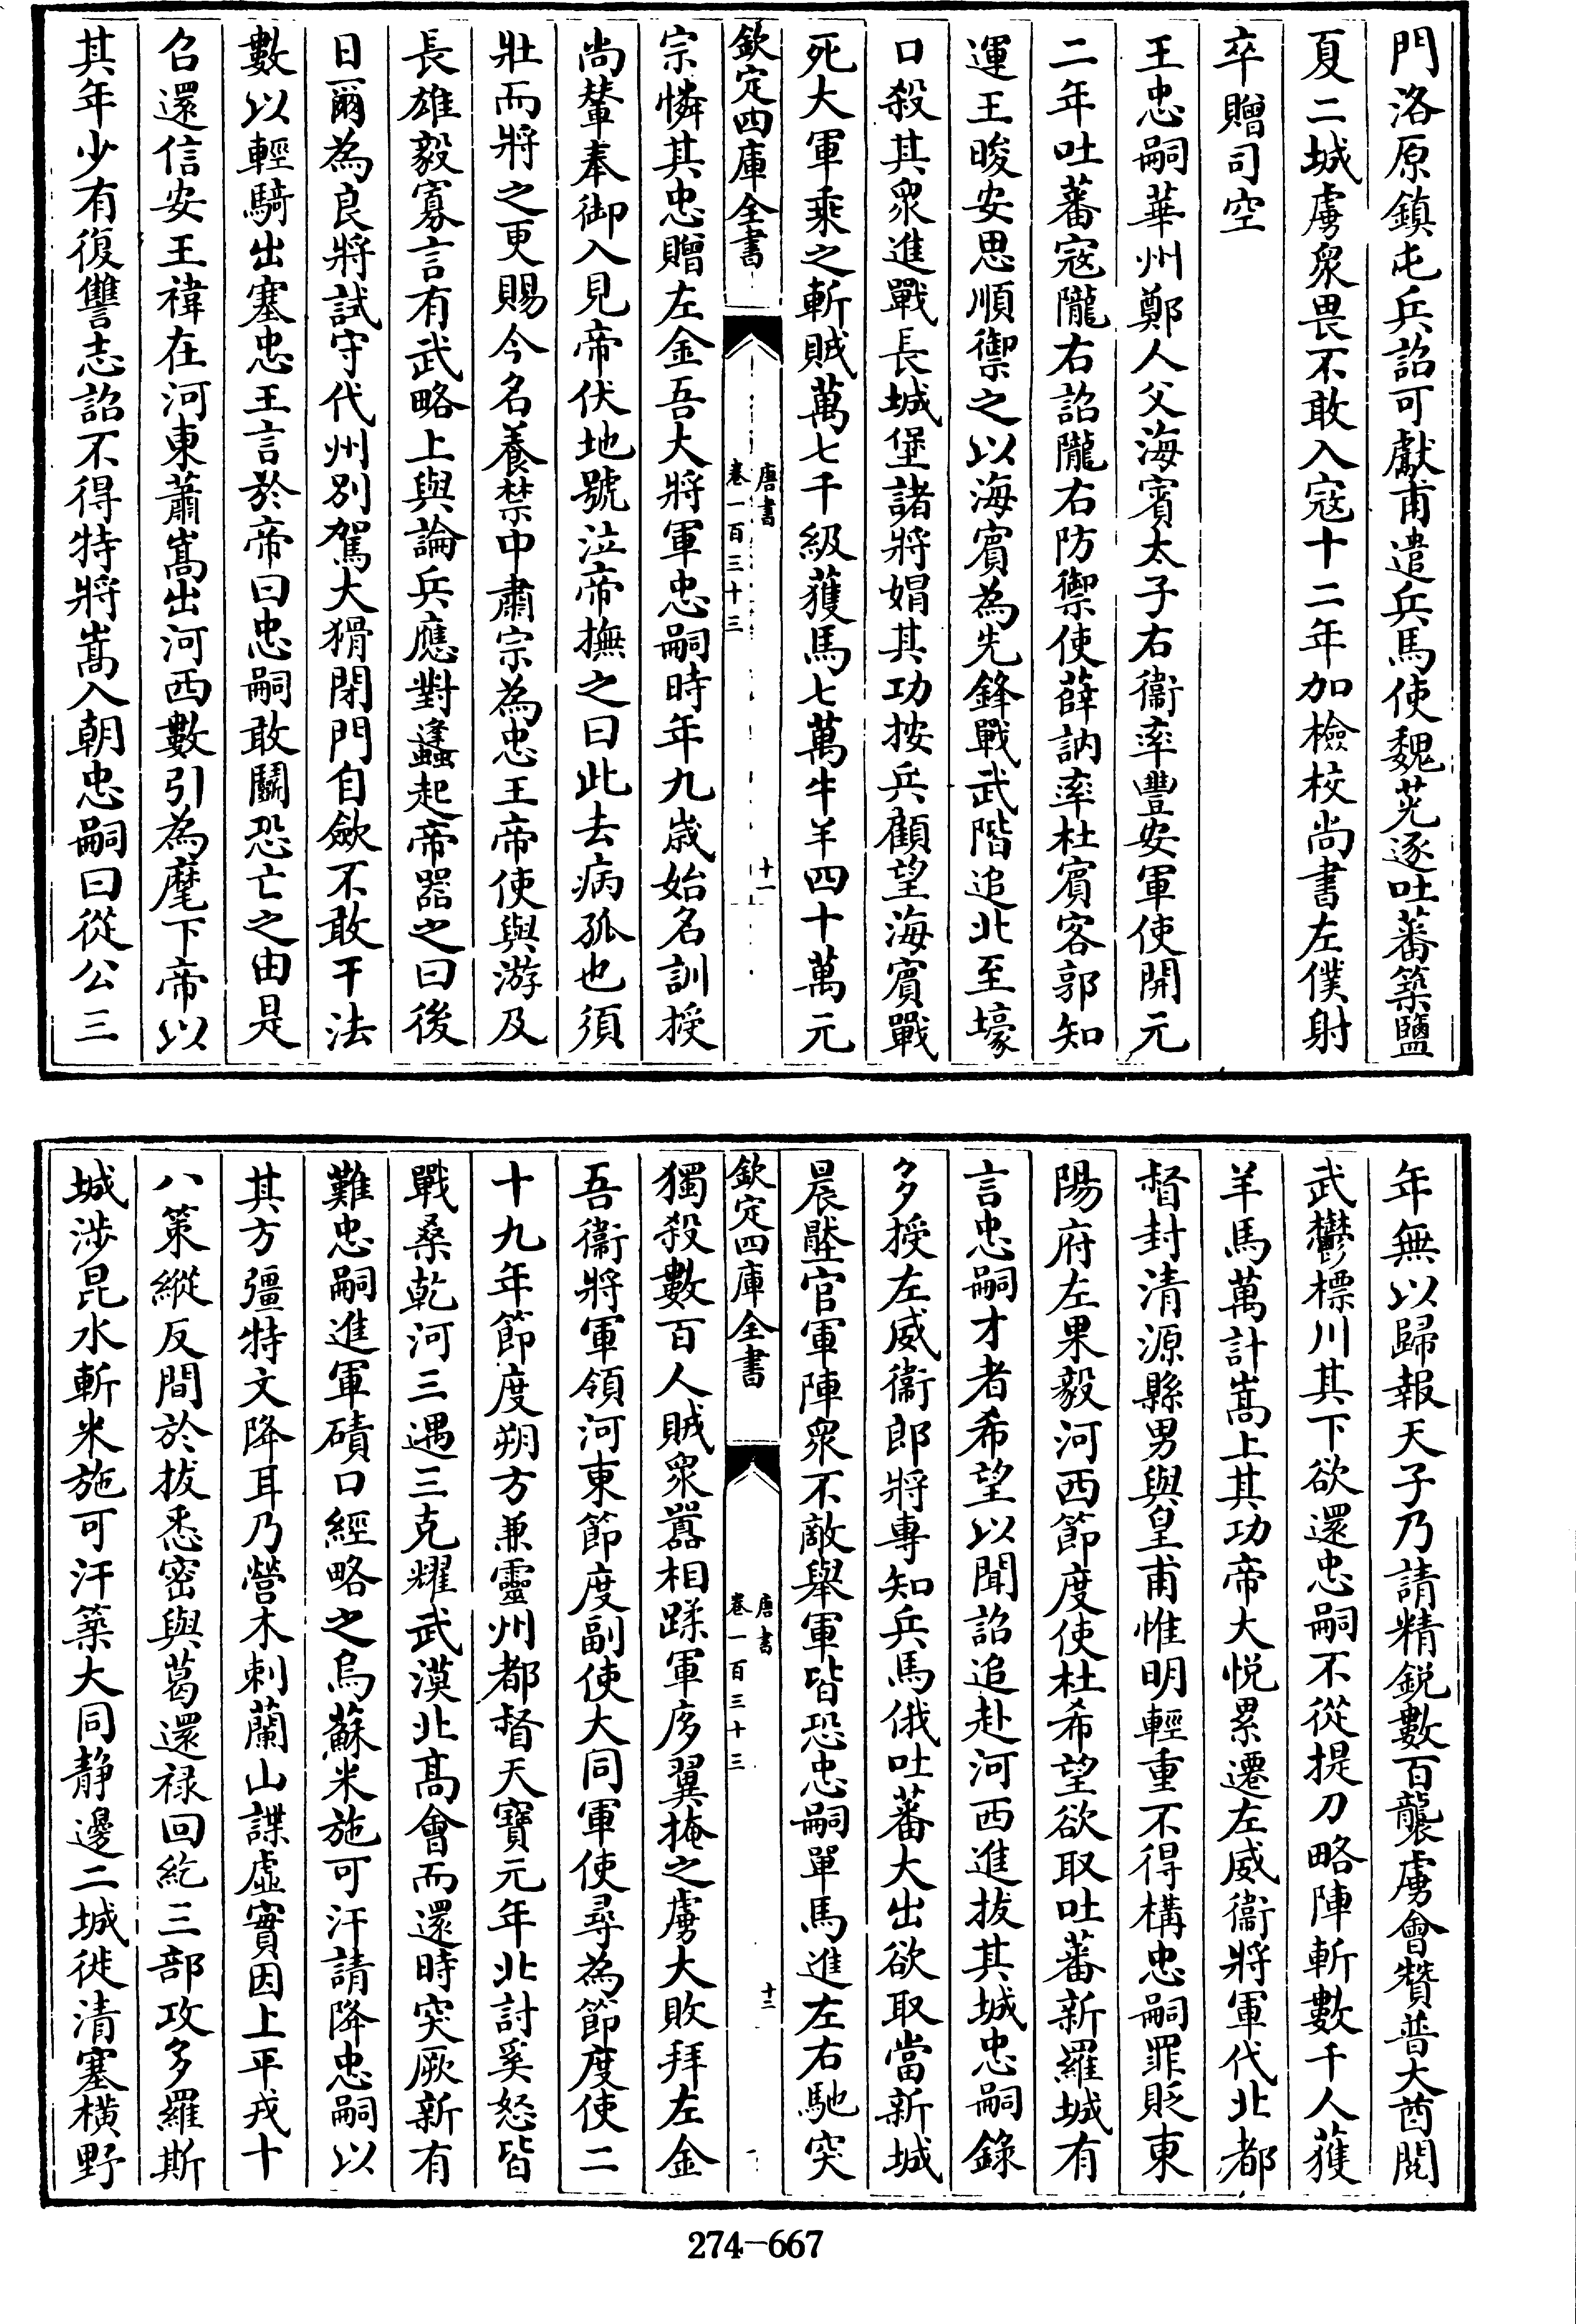 門洛原鎮屯兵詔可獻甫遣兵馬使魏茪逐吐蕃築鹽
夏二城虜衆畏不敢入寇十二年加檢校尚書左僕射
卒贈司空
王忠嗣華州鄭人父海賓太子右衞率豐安軍使開元
二年吐蕃寇隴右詔隴右防禦使薛訥率杜賓客郭知
運王晙安思順禦之以海賓為先鋒戰武階追北至壕
口殺其衆進戰長城堡諸將娼其功按兵顧望海賓戰
死大軍乘之斬賊萬七千級獲馬七萬牛羊四十萬元
欽定四庫全書
唐書
卷一百三十三
十一
宗憐其忠贈左金吾大將軍忠嗣時年九歲始名訓授
尚輦奉御入見帝伏地號泣帝撫之曰此去病孤也須
壯而將之更賜今名養禁中肅宗為忠王帝使與游及
長雄毅寡言有武略上與論兵應對蠭起帝器之曰後
日爾為良將試守代州別駕大猾閉門自歛不敢干法
數以輕騎出塞忠王言於帝曰忠嗣敢鬭恐亡之由是
召還信安王禕在河東蕭嵩出河西數引為麾下帝以
其年少有復讐志詔不得特將嵩入朝忠嗣曰從公三
年無以歸報天子乃請精銳數百襲虜會贊普大酋閱
武鬱標川其下欲還忠嗣不從提刀略陣斬數千人獲
羊馬萬計嵩上其功帝大悅累遷左威衞將軍代北都
督封清源縣男與皇甫惟明輕重不得構忠嗣罪貶東
陽府左果毅河西節度使杜希望欲取吐蕃新羅城有
言忠嗣才者希望以聞詔追赴河西進拔其城忠嗣錄
多授左威衞郎將專知兵馬俄吐蕃大出欲取當新城
晨壓官軍陣衆不敵舉軍皆恐忠嗣單馬進左右馳突
欽定四庫全書
唐書
卷一百三十三
十二
獨殺數百人賊衆囂相蹂軍序翼掩之虜大敗拜左金
吾衞將軍領河東節度副使大同軍使尋為節度使二
十九年節度朔方兼靈州都督天寶元年北討奚怒皆
戰桑乾河三遇三克耀武漠北高會而還時突厥新有
難忠嗣進軍磧口經略之烏蘇米施可汗請降忠嗣以
其方彊特文降耳乃營木剌蘭山諜虛實因上平戎十
八策縱反間於拔悉密與葛邏祿回紇三部攻多羅斯
城涉昆水斬米施可汗築大同靜邊二城徙清塞橫野
274-667